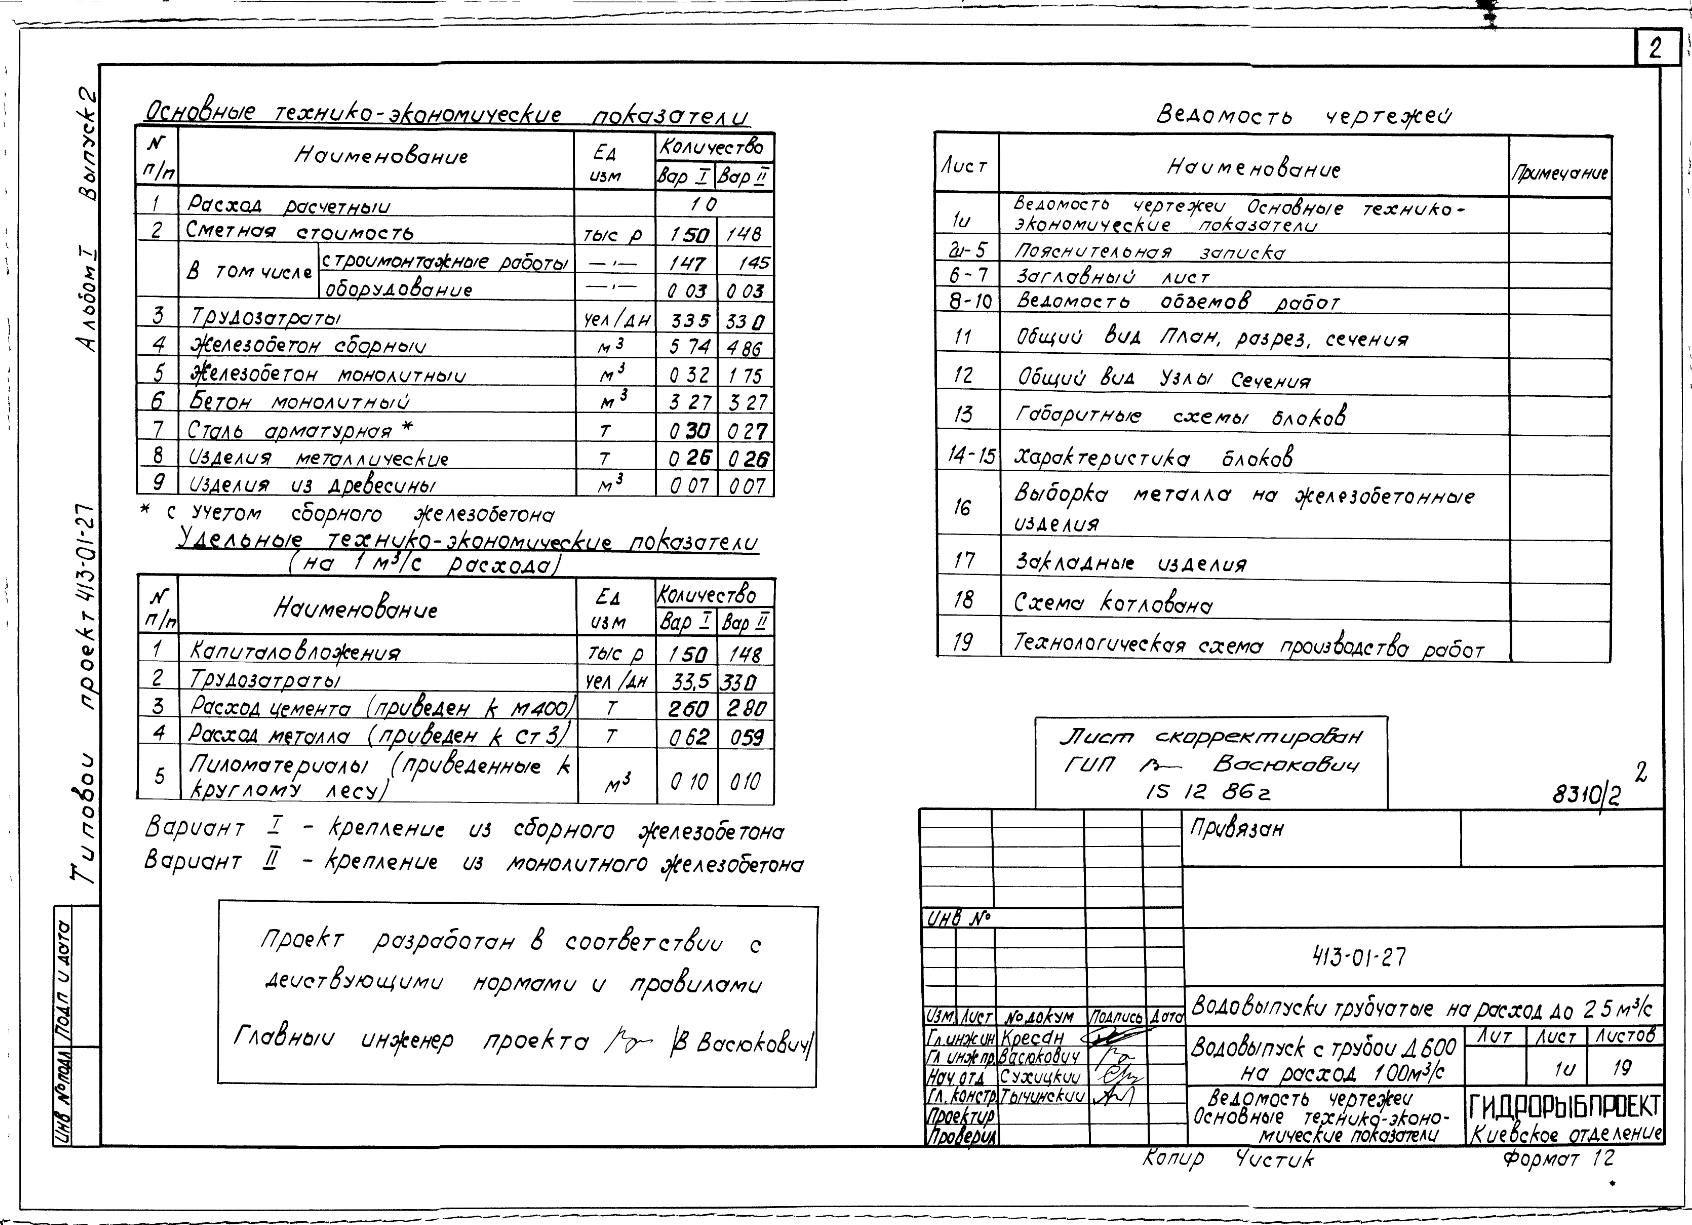 2
Типовой проект 413-01-27 Альбом I Выпуск 2
Основные технико-экономические показатели
N п/п Наименование Ед изм Количество
Вар I Вар II
1 Расход расчетный 1 0
2 Сметная стоимость тыс р 1 50 1 48
В том числе строймонтажные работы —"— 1 47 1 45
оборудование —"— 0 03 0 03
3 Трудозатраты чел/дн 33 5 33 0
4 Железобетон сборный м³ 5 74 4 86
5 Железобетон монолитный м³ 0 32 1 75
6 Бетон монолитный м³ 3 27 3 27
7 Сталь арматурная * т 0 30 0 27
8 Изделия металлические т 0 26 0 26
9 Изделия из древесины м³ 0 07 0 07
* с учетом сборного железобетона
Удельные технико-экономические показатели
(на 1 м³/с расхода)
N п/п Наименование Ед изм Количество
Вар I Вар II
1 Капиталовложения тыс р 1 50 1 48
2 Трудозатраты чел/дн 33,5 33 0
3 Расход цемента (приведен к М400) т 2 60 2 80
4 Расход металла (приведен к ст 3) т 0 62 0 59
5 Пиломатериалы (приведенные к
круглому лесу) м³ 0 10 0 10
Вариант I - крепление из сборного железобетона
Вариант II - крепление из монолитного железобетона
Проект разработан в соответствии с
действующими нормами и правилами
Главный инженер проекта /В Васюкович/
Ведомость чертежей
Лист Наименование Примечание
1и Ведомость чертежей Основные технико-
экономические показатели
2и-5 Пояснительная записка
6-7 Заглавный лист
8-10 Ведомость объемов работ
11 Общий вид План, разрез, сечения
12 Общий вид Узлы Сечения
13 Габаритные схемы блоков
14-15 Характеристика блоков
16 Выборка металла на железобетонные
изделия
17 Закладные изделия
18 Схема котлована
19 Технологическая схема производства работ
Лист скорректирован
ГИП Васюкович
15 12 86г
8310/2 2
Привязан
Инв №
413-01-27
Водовыпуски трубчатые на расход до 2 5 м³/с
Изм. Лист № докум Подпись Дата
Гл.инжин Кресан
Гл инж пр. Васюкович
Нач.отд Сухицкий
Гл.констр. Тычинский
Проектир
Проверил
Водовыпуск с трубой Д 600
на расход 1 00м³/с
Лит Лист Листов
1и 19
Ведомость чертежей
Основные технико-эконо-
мические показатели
ГИДРОРЫБПРОЕКТ
Киевское отделение
Копир Чистик Формат 12
Инв № подл Подп и дата